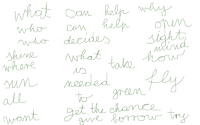 what can help why
who can help open
who decides sight
shine what mind
where is take how
sun needed fly
all to green
get the chance
want give sorrow try